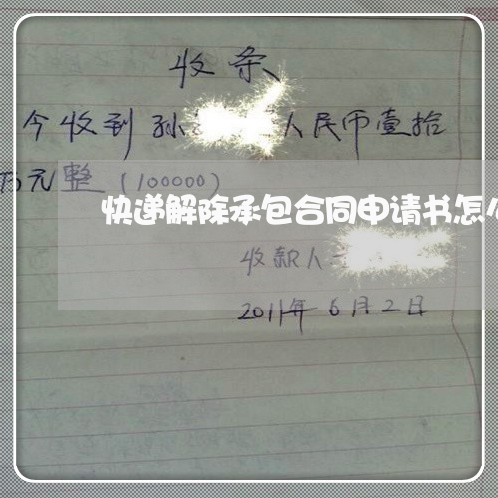 收条
今收到孙 人民币壹拾
万元整（100000）
快递解除承包合同申请书怎
收款人
2011年6月2日